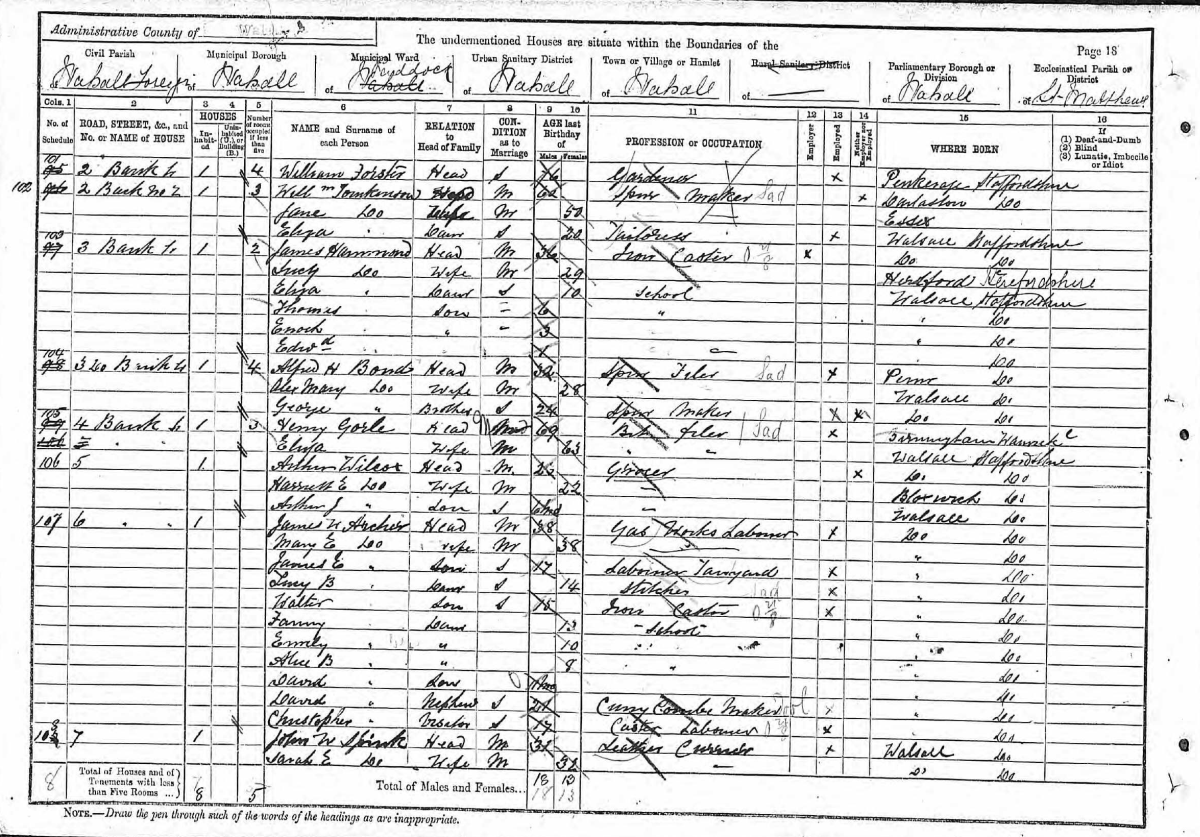 Administrative County of
The undermentioned Houses are situate within the Boundaries of the
Page 18
Civil Parish
Municipal Borough
Municipal Ward
Urban Sanitary District
Town or Village or Hamlet
Rural Sanitary District
Parliamentary Borough or Division
Ecclesiastical Parish or District
of Walsall Foreign
of Walsall
of
of Walsall
of Walsall
of
of Walsall
of St. Matthews
Cols. 1 2 3 4 5 6 7 8 9 10 11 12 13 14 15 16
No. of Schedule
ROAD, STREET, &c., and No. or NAME of HOUSE
HOUSES
Inhabited
Uninhabited (U.), or Building (B.)
Number of rooms occupied if less than five
NAME and Surname of each Person
RELATION to Head of Family
CONDITION as to Marriage
AGE last Birthday of
Males Females
PROFESSION or OCCUPATION
Employer
Employed
Neither Employer nor Employed
WHERE BORN
If
(1) Deaf-and-Dumb
(2) Blind
(3) Lunatic, Imbecile or Idiot
101 2 Bank St 1 4 William Forster Head S 76 Gardener x Staffordshire
102 2 Back No 2 1 3 Willm Tomkinson Head M 62 Spur Maker Sad x Darlaston Do
Jane Do Wife M 50 Essex
Eliza " Daur S 20 Tailoress x Walsall Staffordshire
103 3 Bank St 1 2 James Hammond Head M 36 Iron Caster x Do Do
Lucy Do Wife M 29 Hereford Herefordshire
Eliza " Daur S 10 School Walsall Staffordshire
Thomas " Son - 6 " " Do
Enoch " " - 3 " Do
Edwd " " 1 " Do
104 Bank St 1 4 Alfred H Bond Head M 32 Spur Filer Sad x Penn Do
Mary Do Wife M 28 Walsall Do
George " Brother S 24 Spur Maker x x Do Do
105 4 Bank St 1 3 Henry Gorle Head M 69 Bit filer Sad x Birmingham
Eliza " Wife M 63 " " Walsall Staffordshire
106 5 1 Arthur Wilcox Head M Grocer x Do Do
Harriett E Do Wife M 22 Bloxwich Do
Arthur J " Son S Walsall Do
107 6 " " 1 James W Archer Head M 38 Gas Works Labourer x Do Do
Mary E Do Wife M 38 " Do
James E " Son S 17 Labourer Tanyard x " Do
Lucy B " Daur S 14 Stitcher Sad x " Do
Walter " Son S 15 Iron Castor x " Do
Fanny " Daur 13 School " Do
Emily " " 10 " " Do
Alice B " " 8 " " Do
David " Son " Do
David " Nephew S 21 Curry Combe Maker x " Do
Christopher " Visitor S 17 Caster Labourer x " Do
108 7 1 John W Spink Head M 31 Leather Currier x Walsall Do
Sarah E Do Wife M 31 Do Do
8 Total of Houses and of Tenements with less than Five Rooms ... 8 5 Total of Males and Females... 18 13
18 13
NOTE.—Draw the pen through such of the words of the headings as are inappropriate.